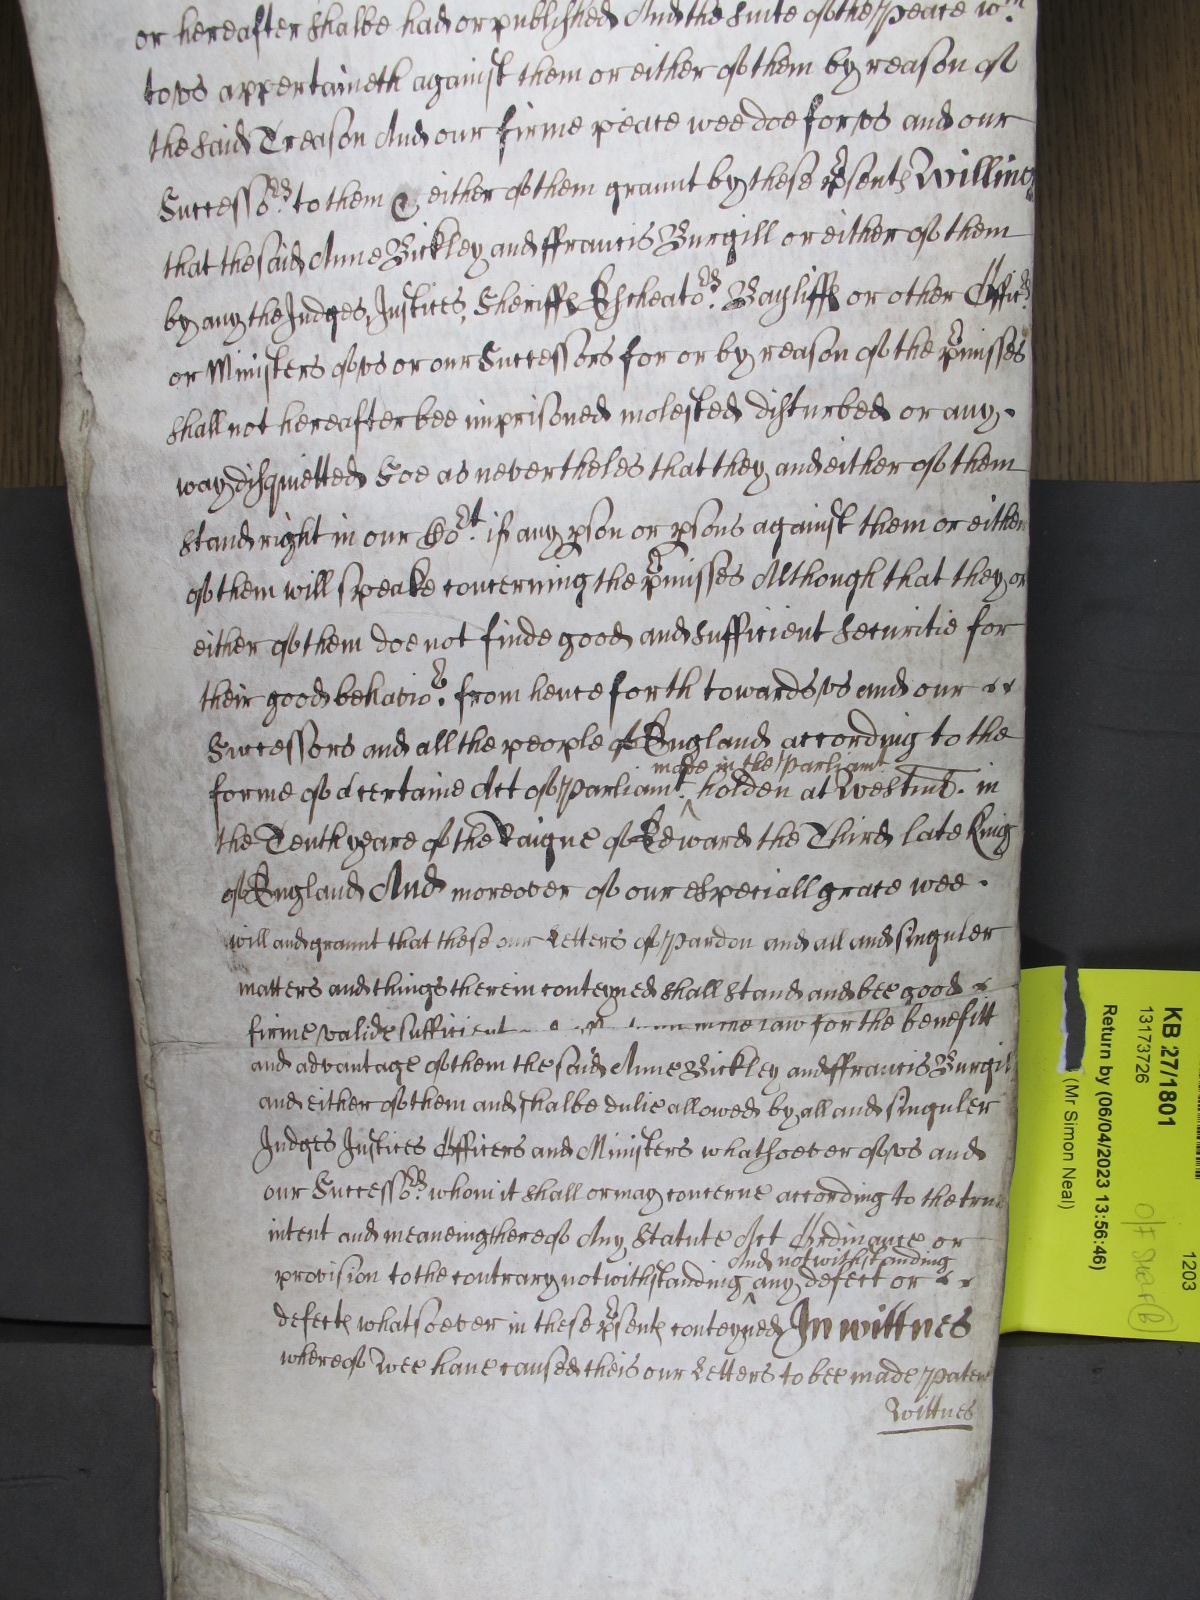 or hereafter shalbe had or published And the suite of the Peace wch
to us appertaineth against them or either of them by reason of
the said Treason And our firme peace wee doe for us and our
Successors to them & either of them graunt by these psents Willing
that the said Anne Bickley and ffrancis Burgill or either of them
by any the Judges, Justices, Sheriffs Escheators Bayliffs or other Officrs
or Ministers of us or our Successors for or by reason of the pmisses
shall not hereafter bee imprisoned molested disturbed or any
way disquietted Soe as nevertheles that they and either of them
stand right in our Cot if any pson or psons against them or either
of them will speake concerning the pmisses Although that they or
either of them doe not finde good and sufficient securitie for
their good behavior from henceforth towards us and our
Successors and all the people of England according to the
made in the Parliamt
forme of a certaine Act of Parliamt ^ holden at Westmr. in
the Tenth yeare of the Raigne of Edward the Third late King
of England And moreover of our especiall grace wee
will and graunt that these our Letters of Pardon and all and singuler
matters and things therein conteyned shall stand and bee good
firme valide sufficient in the law for the benefitt
and advantage of them the said Anne Bickley and ffrancis Burgill
and either of them and shalbe dulie allowed by all and singuler
Judges Justices Officers and Ministers whatsoever of us and
our Successors whom it shall or may concerne according to the true
intent and meaneing thereof Any Statute Act Ordinance or
And notwithstanding
provision to the contrary notwithstanding ^ any defect or
defects whatsoever in these psents conteyned In wittnes
whereof Wee have caused theis our Letters to bee made Patent
Wittnes
KB 27/1801
13173726
Return by (06/04/2023 13:56:46)
(Mr Simon Neal)
1203